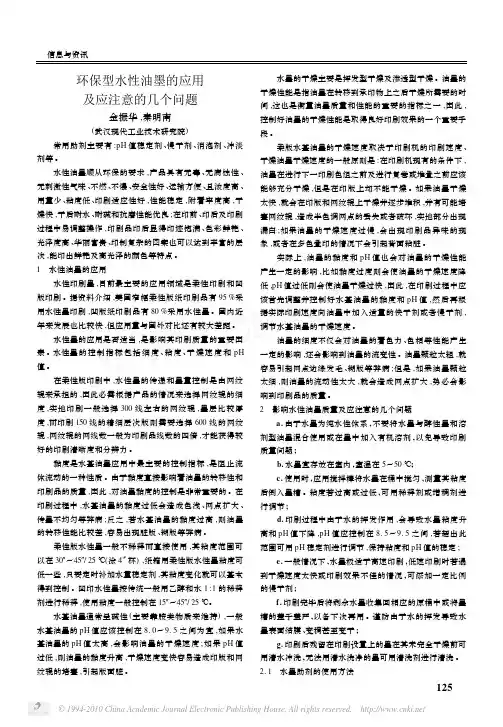 信息与资讯
环保型水性油墨的应用
及应注意的几个问题
金振华,秦明南
(武汉现代工业技术研究院)
常用助剂主要有:pH值稳定剂、慢干剂、消泡剂、冲淡
剂等。
水性油墨顺从环保的要求,产品具有无毒、无腐蚀性、
无刺激性气味、不燃、不爆、安全性好、运输方便、且浓度高、
用量少、粘度低、印刷适应性好,性能稳定,附着牢度高,干
燥快,干后耐水、耐碱和抗磨性能优良;在印前、印后及印刷
过程中易调整操作,印刷品印后显得印迹饱满、色彩鲜艳、
光泽度高、华丽富贵、印制复杂的图案也可以达到丰富的层
次,能印出鲜艳及高光泽的颜色等特点。
1 水性油墨的应用
水性印刷墨,目前最主要的应用领域是柔性印刷和凹
版印刷。据资料介绍,美国窄幅柔性版纸印刷品有95%采
用水性墨印刷,凹版纸印刷品有80%采用水性墨。国内近
年来发展也比较快,但应用量与国外对比还有较大差距。
水性墨的应用是否适当,是影响其印刷质量的重要因
素。水性墨的控制指标包括细度、粘度、干燥速度和pH
值。
在柔性版印刷中,水性墨的传递和墨量控制是由网纹
辊来承担的,因此必需根据产品的情况来选择网纹辊的细
度,实地印刷一般选择300线左右的网纹辊,墨层比较厚
度,而印刷150线的精细层次版则需要选择600线的网纹
辊,网纹辊的网线数一般为印刷品线数的四倍,才能获得较
好的印刷清晰度和分辨力。
黏度是水基油墨应用中最主要的控制指标,是阻止流
体流动的一种性质。由于黏度直接影响着油墨的转移性和
印刷品的质量,因此,对油墨黏度的控制是非常重要的。在
印刷过程中,水基油墨的黏度过低会造成色浅、网点扩大、
传墨不均匀等弊病;反之,若水基油墨的黏度过高,则油墨
的转移性能比较差,容易出现脏版、糊版等弊病。
柔性版水性墨一般不稀释而直接使用,其粘度范围可
以在30"~45"/25℃(涂4#杯),纸箱用柔版水性墨粘度可
低一些,只要定时补加水重稳定剂,其粘度变化就可以基本
得到控制。凹印水性墨按传统一般用乙醇和水1:1的稀释
剂进行稀释,使用粘度一般控制在15"~45"/25℃。
水基油墨通常呈碱性(主要靠胺类物质来维持),一般
水基油墨的pH值应该控制在8.0~9.5之间为宜,如果水
基油墨的pH值太高,会影响油墨的干燥速度;如果pH值
过低,则油墨的黏度升高,干燥速度变快容易造成印版和网
纹辊的堵塞,引起版面脏。
水墨的干燥主要是挥发型干燥及渗透型干燥。油墨的
干燥性能是指油墨在转移到承印物上之后干燥所需要的时
间,这也是衡量油墨质量和性能的重要的指标之一,因此,
控制好油墨的干燥性能是取得良好印刷效果的一个重要手
段。
柔版水基油墨的干燥速度取决于印刷机的印刷速度、
干燥油墨干燥速度的一般原则是:在印刷机现有的条件下,
油墨在进行下一印刷色组之前及进行复卷或堆叠之前应该
能够充分干燥,但是在印版上却不能干燥。如果油墨干燥
太快,就会在印版和网纹辊上干燥并逐步堆积,并有可能堵
塞网纹辊,造成半色调网点的损失或者破坏,实地部分出现
漏白;如果油墨的干燥速度过慢,会出现印刷品异味的现
象,或者在多色叠印的情况下会引起背面粘脏。
实际上,油墨的黏度和pH值也会对油墨的干燥性能
产生一定的影响,比如黏度过度则会使油墨的干燥速度降
低,pH值过低则会使油墨干燥过快,因此,在印刷过程中应
该首先调整并控制好水基油墨的黏度和pH值,然后再根
据实际印刷速度向油墨中加入适量的快干剂或者慢干剂,
调节水基油墨的干燥速度。
油墨的细度不仅会对油墨的着色力、色相等性能产生
一定的影响,还会影响到油墨的流变性。油墨颗粒太粗,就
容易引起网点边缘发毛、糊版等弊病;但是,如果油墨颗粒
太细,则油墨的流动性太大,就会造成网点扩大,势必会影
响到印刷品的质量。
2 影响水性油墨质量及应注意的几个问题
a.由于水墨为纯水性体系,不要将水墨与醇性墨和溶
剂型油墨混合使用或在墨中加入有机溶剂,以免导致印刷
质量问题;
b.水墨宜存放在室内,室温在5~50℃;
c.使用时,应用搅拌棒将水墨在桶中搅匀,测量其粘度
后倒入墨槽。粘度若过高或过低,可用稀释剂或增稠剂进
行调节;
d.印刷过程中由于水的挥发作用,会导致水墨粘度升
高和pH值下降,pH值应控制在8.5~9.5之间,若超出此
范围可用pH稳定剂进行调节,保持粘度和pH值的稳定;
e.一般情况下,水墨较适于高速印刷,低速印刷时若遇
到干燥速度太快或印刷效果不佳的情况,可添加一定比例
的慢干剂;
f.印刷完毕后将剩余水墨收集回相应的原桶中或将墨
槽的盖子盖严,以备下次再用。谨防由于水的挥发导致水
墨表面结膜、变稠甚至变干;
g.印刷后残留在印刷设置上的墨在其未完全干燥前可
用清水冲洗,无法用清水洗净的墨可用清洗剂进行清洗。
2.1 水墨助剂的使用方法
125
© 1994-2010 China Academic Journal Electronic Publishing House. All rights reserved. http://www.cnki.net